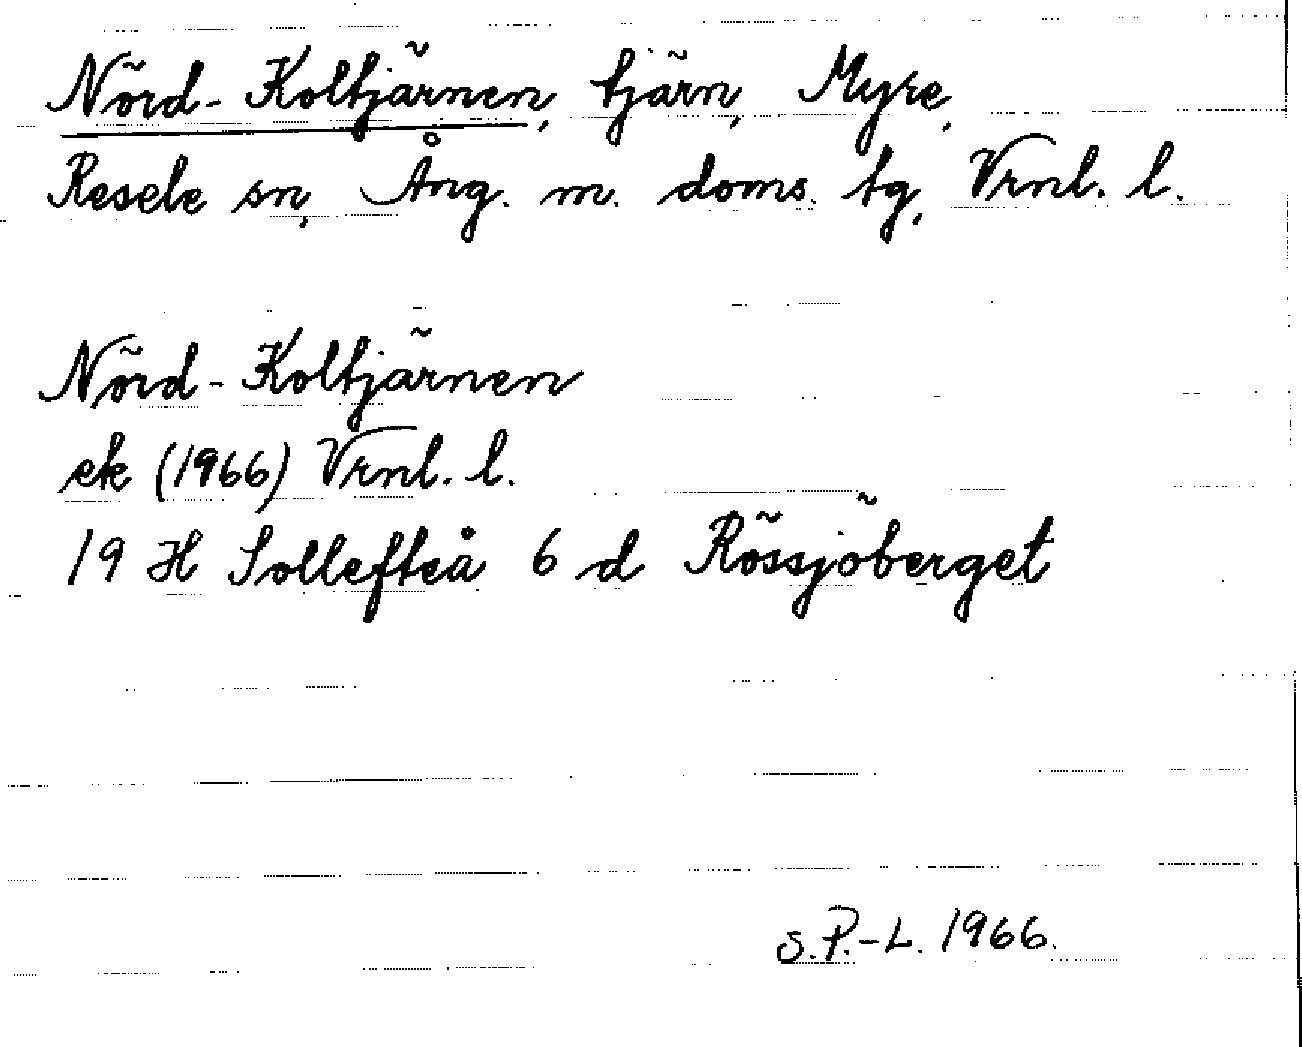 Nörd-Koltjärnen, tjärn, Myre,
Resele sn, Ång. m. doms. tg, Vrnl. l.
Nörd-Koltjärnen
ek (1966) Vrnl. l.
19 H Sollefteå 6 d Rössjöberget
S.P.-L. 1966.